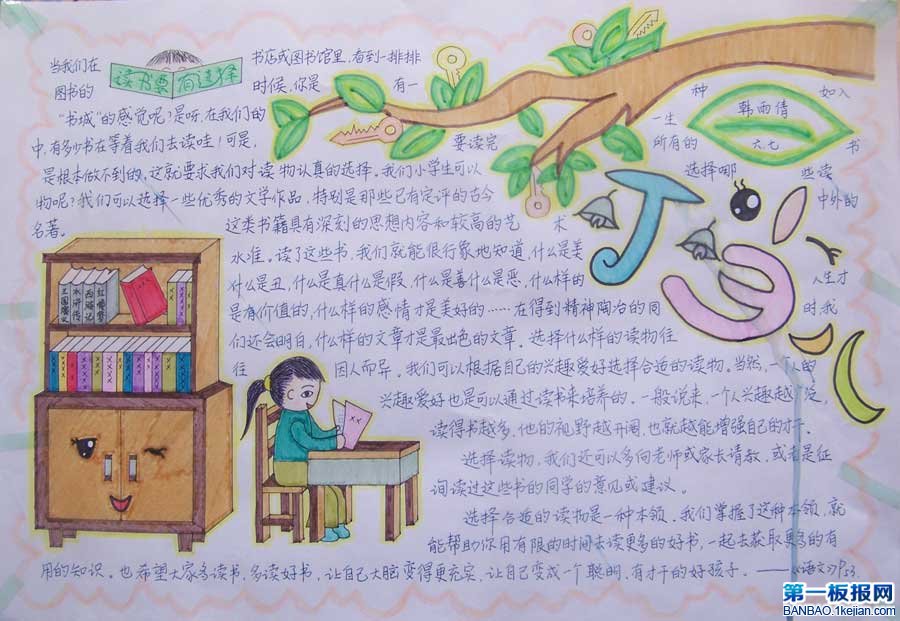 读书要有选择
当我们在 书店或图书馆里,看到一排排
图书的 时候,你是 有一 种 如入
“书城”的感觉呢?是听,在我们的 一生
中,有多少书在等着我们去读哇!可是, 要读完 所有的 书
是根本做不到的,这就要求我们对读物认真的选择。我们小学生可以 选择哪 些读
物呢?我们可以选择一些优秀的文学作品,特别是那些已有定评的古今 中外的
名著。 这类书籍具有深刻的思想内容和较高的艺 术
水准。读了这些书,我们就能很形象地知道,什么是美
什么是丑,什么是真什么是假,什么是善什么是恶,什么样的 人生才
是有价值的,什么样的感情才是美好的……在得到精神陶冶的同 时,我
们还会明白,什么样的文章才是最出色的文章。选择什么样的读物往
往 因人而异。我们可以根据自己的兴趣爱好选择合适的读物。当然,一个人的
兴趣爱好也是可以通过读书来培养的。一般说来,一个人兴趣越广泛,
读得书越多,他的视野越开阔,也就越能增强自己的才干。
选择读物,我们还可以多向老师或家长请教,或者是征
询读过这些书的同学的意见或建议。
选择合适的读物是一种本领。我们掌握了这种本领,就
能帮助你用有限的时间去读更多的好书,一起去获取更多的有
用的知识。也希望大家多读书,多读好书,让自己大脑变得更充实,让自己变成一个聪明、有才干的好孩子。——《语文》P53
韩雨倩
六、七
三国演义
水浒传
西游记
红楼梦
XX
第一板报网
BANBAO.1kejian.com